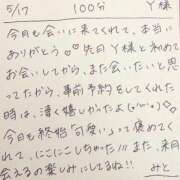 5/17 100分 Y様
今月も会いに来てくれて、本当に
ありがとう♡先月Y様と初めて
お会いしてから、また会いたいと思っ
てたから、事前予約をしてくれた
時は、凄く嬉しかったよ(๑´ω`๑)♡
今日も終始「可愛い」って褒めてく
れて、にこにこしちゃった!!! また、来月
会えるの楽しみにしてるね!! みと